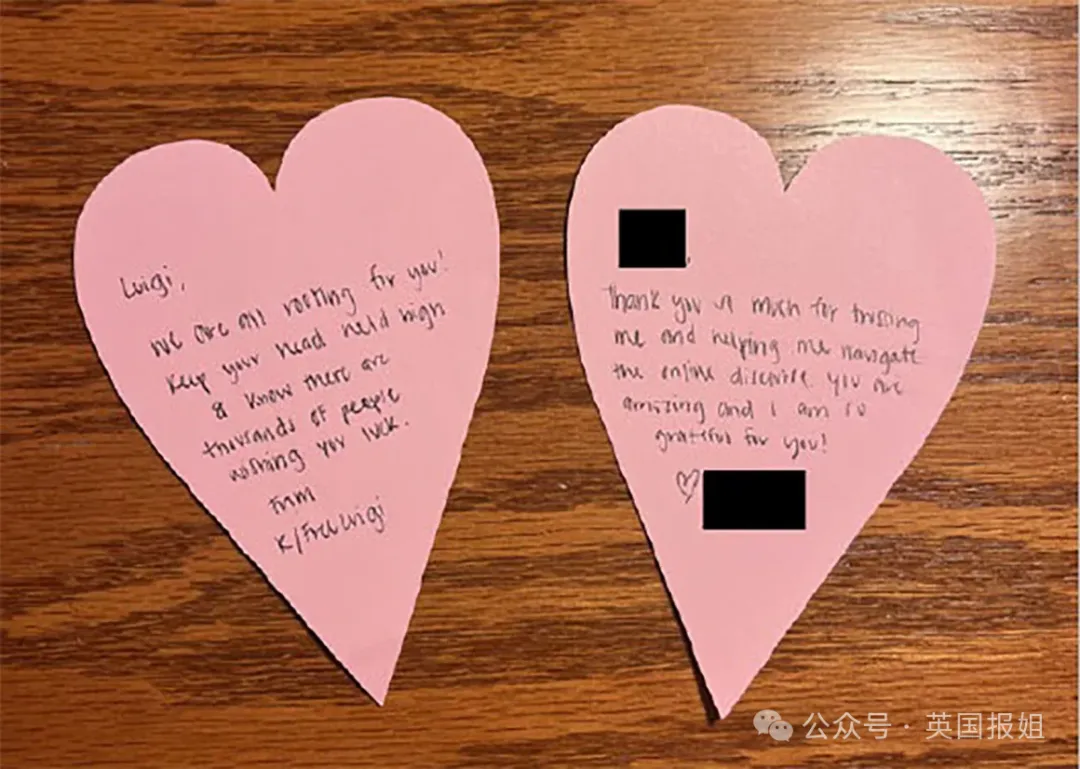 Luigi,
we are all rooting for you!
Keep your head held high
& know there are
thousands of people
wishing you luck.
From
K/FreeLuigi
Thank you so much for trusting
me and helping me navigate
the online discourse. you are
amazing and I am so
grateful for you!
公众号 · 英国报姐